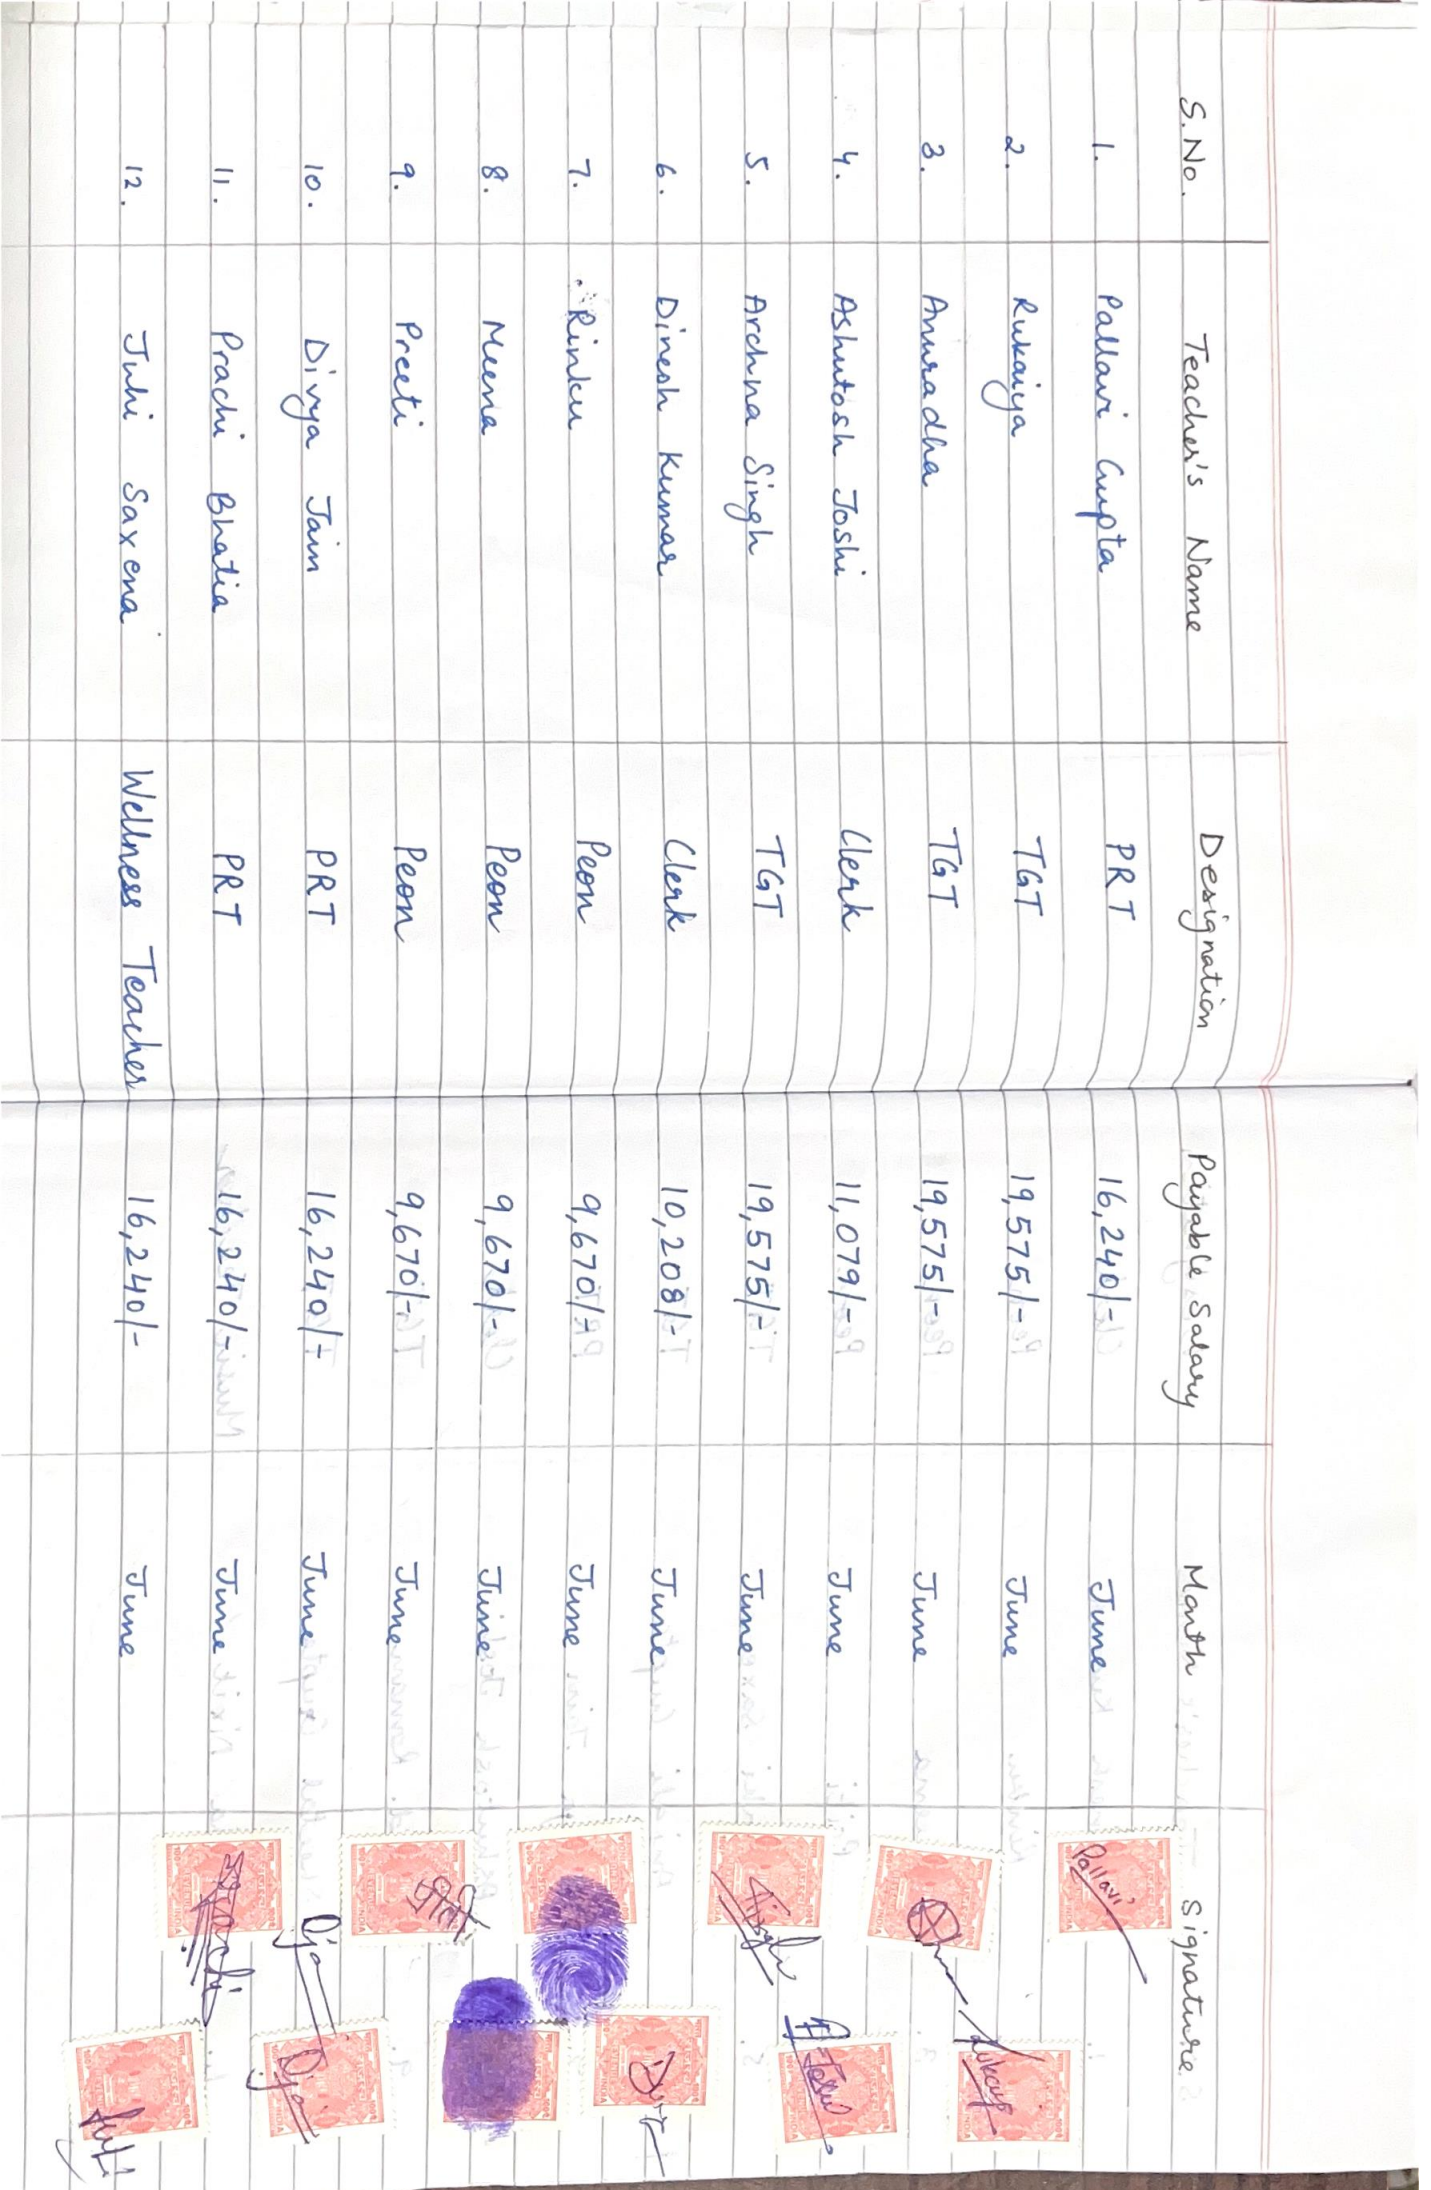 S.No. Teacher's Name Designation Payable Salary Month Signature
1. Pallavi Gupta PRT 16,240/- June Pallavi
2. Rukaiya TGT 19,575/- June
3. Anuradha TGT 19,575/- June
4. Ashutosh Joshi Clerk 11,079/- June
5. Archna Singh TGT 19,575/- June
6. Dinesh Kumar Clerk 10,208/- June
7. Rinku Peon 9,670/- June
8. Meena Peon 9,670/- June
9. Preeti Peon 9,670/- June
10. Divya Jain PRT 16,240/- June
11. Prachi Bhatia PRT 16,240/- June
12. Juhi Saxena Wellness Teacher 16,240/- June